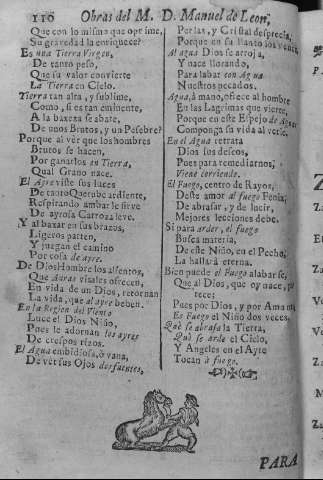 110 Obras del M. D. Manuel de Leon,
Que con lo mismo que oprime,
Su gravedad la enriquece?
Es una Tierra Virgen,
De tanto peso,
Que su valor convierte
La Tierra en Cielo.
Tierra tan alta, y sublime,
Como, si es tan eminente,
A la baxeza se abate,
De unos Brutos, y un Pesebre?
Porque al vèr que los hombres
Brutos se hacen,
Por ganarlos en Tierra,
Qual Grano nace.
El Ayre viste sus luces
De tanto Querube ardiente,
Respirando ambar le sirve
De ayrosa Carroza leve.
Y al baxar en sus brazos,
Ligeros parten,
Y juegan el camino
Por cosa de Ayre.
De Dios Hombre los alientos,
Que Auras vitales ofrecen,
En vida de un Dios, retornan
La vida, que al ayre beben.
En la Region del Viento
Luce el Dios Niño,
Pues le adornan los ayres
De crespos rizos.
El Agua embidiosa, ò vana,
De vèr sus Ojos dos fuentes,
Perlas, y Cristal desprecia,
Porque en su llanto los vence.
Al agua Dios se arroja,
Y nace llorando,
Para labar con Agua
Nuestros pecados.
Agua, à mano, ofrece al hombre
En las Lagrimas que vierte,
Porque en este Espejo de Agua
Componga su vida al verse.
En el Agua retrata
Dios sus deseos,
Pues para remediarnos,
Viene corriendo.
El Fuego, centro de Rayos,
Deste amor al fuego Fenix,
De abrasar, y de lucir,
Mejores lecciones bebe.
Si para arder, el fuego
Busca materia,
De este Niño, en el Pecho,
La hallarà eterna.
Bien puede el Fuego alabarse,
Que al Dios, que oy nace, pa-
rece;
Pues por Dios, y por Amante
Es Fuego el Niño dos veces.
Què se abrasa la Tierra,
Què se arde el Cielo,
Y Angeles en el Ayre
Tocan à fuego.
PARA